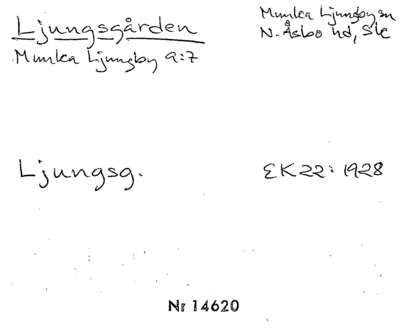 Ljungsgården
Munka Ljungby 9:7
Munka Ljungby sn
N. Åsbo hd, Sk
Ljungsg.
EK22: 1928
Nr 14620